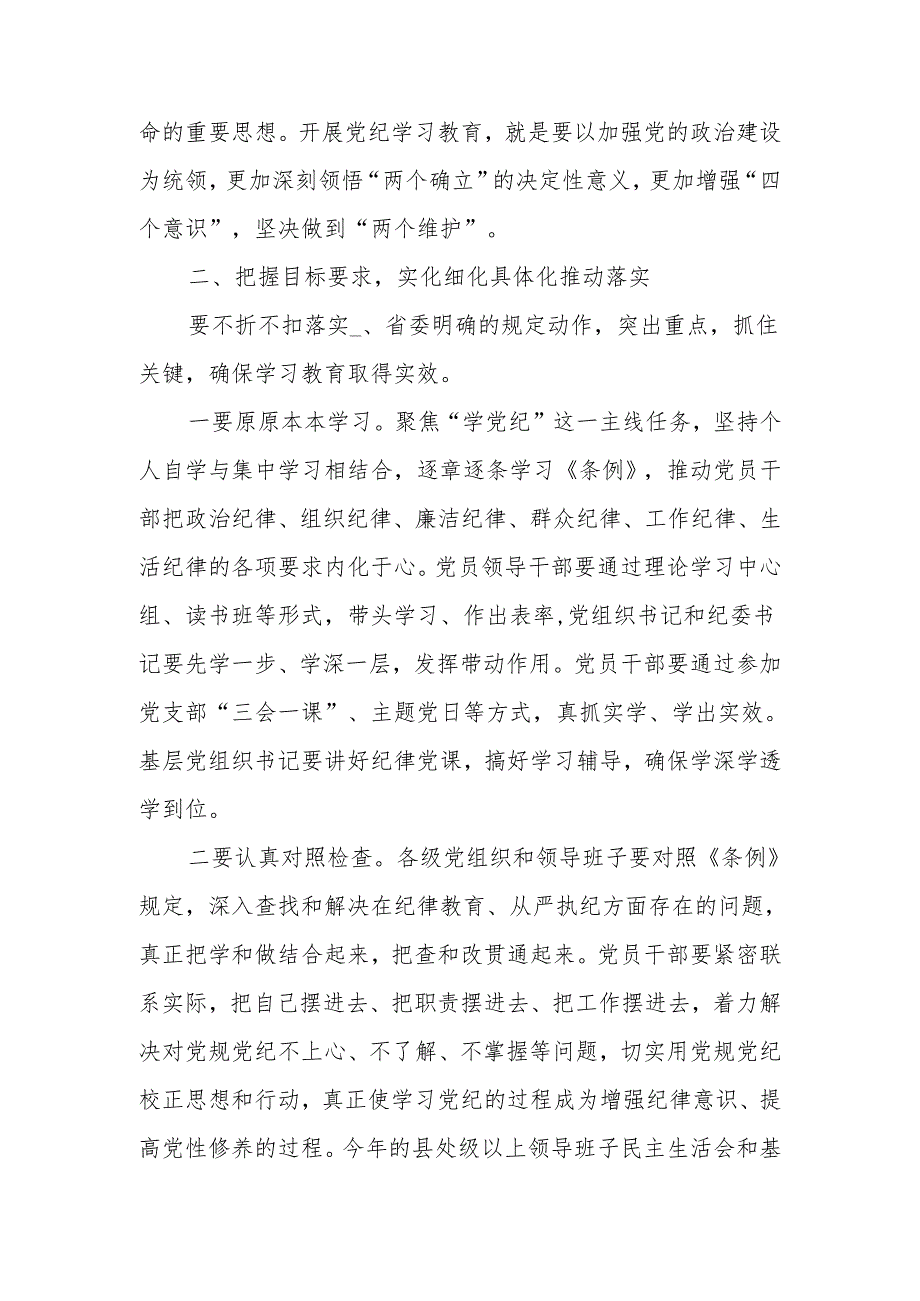 命的重要思想。开展党纪学习教育，就是要以加强党的政治建设
为统领，更加深刻领悟“两个确立”的决定性意义，更加增强“四
个意识”，坚决做到“两个维护”。
二、把握目标要求，实化细化具体化推动落实
要不折不扣落实_、省委明确的规定动作，突出重点，抓住
关键，确保学习教育取得实效。
一要原原本本学习。聚焦“学党纪”这一主线任务，坚持个
人自学与集中学习相结合，逐章逐条学习《条例》，推动党员干
部把政治纪律、组织纪律、廉洁纪律、群众纪律、工作纪律、生
活纪律的各项要求内化于心。党员领导干部要通过理论学习中心
组、读书班等形式，带头学习、作出表率,党组织书记和纪委书
记要先学一步、学深一层，发挥带动作用。党员干部要通过参加
党支部“三会一课”、主题党日等方式，真抓实学、学出实效。
基层党组织书记要讲好纪律党课，搞好学习辅导，确保学深学透
学到位。
二要认真对照检查。各级党组织和领导班子要对照《条例》
规定，深入查找和解决在纪律教育、从严执纪方面存在的问题，
真正把学和做结合起来，把查和改贯通起来。党员干部要紧密联
系实际，把自己摆进去、把职责摆进去、把工作摆进去，着力解
决对党规党纪不上心、不了解、不掌握等问题，切实用党规党纪
校正思想和行动，真正使学习党纪的过程成为增强纪律意识、提
高党性修养的过程。今年的县处级以上领导班子民主生活会和基